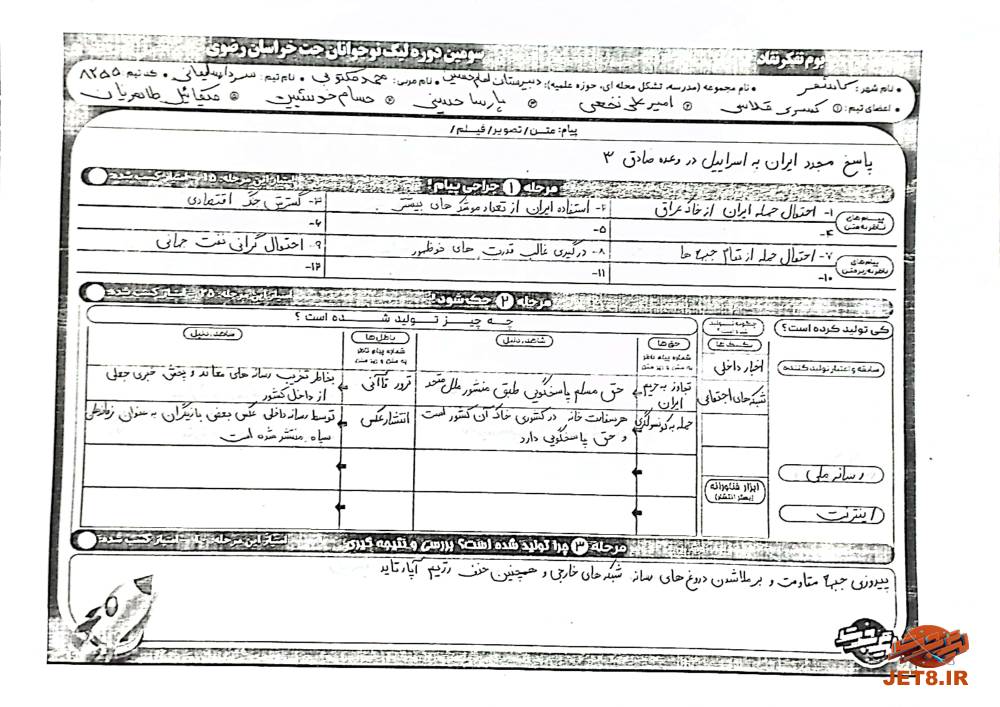 سومین دوره لیگ نوجوانان جت خراسان رضوی
بوم تفکر نقاد
نام شهر: کاشمر • نام مجموعه (مدرسه، تشکل محله ای، حوزه علمیه): دبیرستان امام خمینی • نام مربی: محمد مکتوبی • نام تیم: سردار سلیمانی • کد تیم: ۸۲۵۵
اعضای تیم: ① کسری قلاسی ② امیرعلی نخعی ③ پارسا حسینی ④ حسام خوشبین ⑤ میکائیل طاهریان
پیام: متن/ تصویر/ فیلم/
پاسخ مجدد ایران به اسراییل در وعده صادق ۳
مرحله ۱ جراحی پیام!
امتیاز این مرحله: ۱۵ امتیاز کسب شده:
پیام‌های ناظر به متن
۱- احتمال حمله ایران از خاک عراق
۲- استفاده ایران از تعداد موشک های بیشتر
۳- گسترش جنگ اقتصادی
۴-
۵-
۶-
پیام‌های ناظر به زیر متن
۷- احتمال حمله از تمام جبهه ها
۸- درگیری غالب قدرت های نوظهور
۹- احتمال گرانی نفت جهانی
۱۰-
۱۱-
۱۲-
مرحله ۲ چک شود!
امتیاز این مرحله: ۲۵ امتیاز کسب شده:
کی تولید کرده است؟
سابقه و اعتبار تولید کننده
رسانه ملی
اینترنت
چگونه تولید شده است؟
تکنیک ها
اخبار داخلی
شبکه های اجتماعی
ابزار فناورانه (بستر انتشار)
چه چیز تولید شده است؟
حق‌ها
شماره پیام ناظر به متن و زیر متن
شاهد، دلیل
باطل‌ها
شماره پیام ناظر به متن و زیر متن
شاهد، دلیل
تجاوز به حریم ایران
حق مسلم پاسخگویی طبق منشور ملل متحد
ترور قاآنی
بخاطر تخریب رسانه های معاند و پخش خبری جعلی از داخل کشور
حمله به کونسولگری
هر سفارت خانه در کشوری خاک آن کشور است و حق پاسخگویی دارد
انتشار عکس
توسط رسانه داخلی عکس بعضی بازیگران به عنوان سیاه منتشر شده است
مرحله ۳ چرا تولید شده است؟ بررسی و نتیجه گیری
امتیاز این مرحله: امتیاز کسب شده:
پیروزی جبهه مقاومت و برملاشدن دروغ های رسانه شبکه های خارجی و همچنین حذف رژیم آپارتاید
JET8.IR